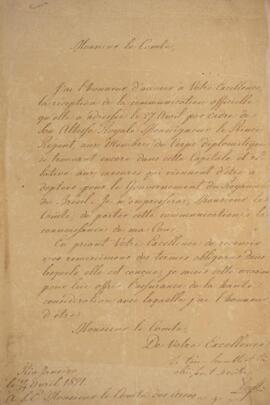 Monsieur le Comte,
J'ai l'honneur d'accuser à Votre Excellence,
la réception de la communication officielle
qu'elle a adressée le 27 Avril par ordre de
Son Altesse Royale Monseigneur le Prince
Régent, aux Membres du Corps diplomatique
se trouvant encore dans cette Capitale et re-
lative aux mesures qui viennent d'être a-
doptées pour le Gouvernement du Royaume
du Brésil. Je m'empresserai, Monsieur le
Comte, de porter cette communication à la
connaissance de ma Cour.
En priant Votre Excellence de recevoir
mes remercimens des termes obligeans dans
lesquels elle est conçue, je saisis cette occasion
pour lui offrir l'assurance de la haute
considération avec laquelle j'ai l'honneur
d'être
Monsieur le Comte,
De Votre Excellence
le très humble et très
obéissant Serviteur
Rio Janeiro
le Avril 1821.
A S. E. Monsieur le Comte dos Arcos